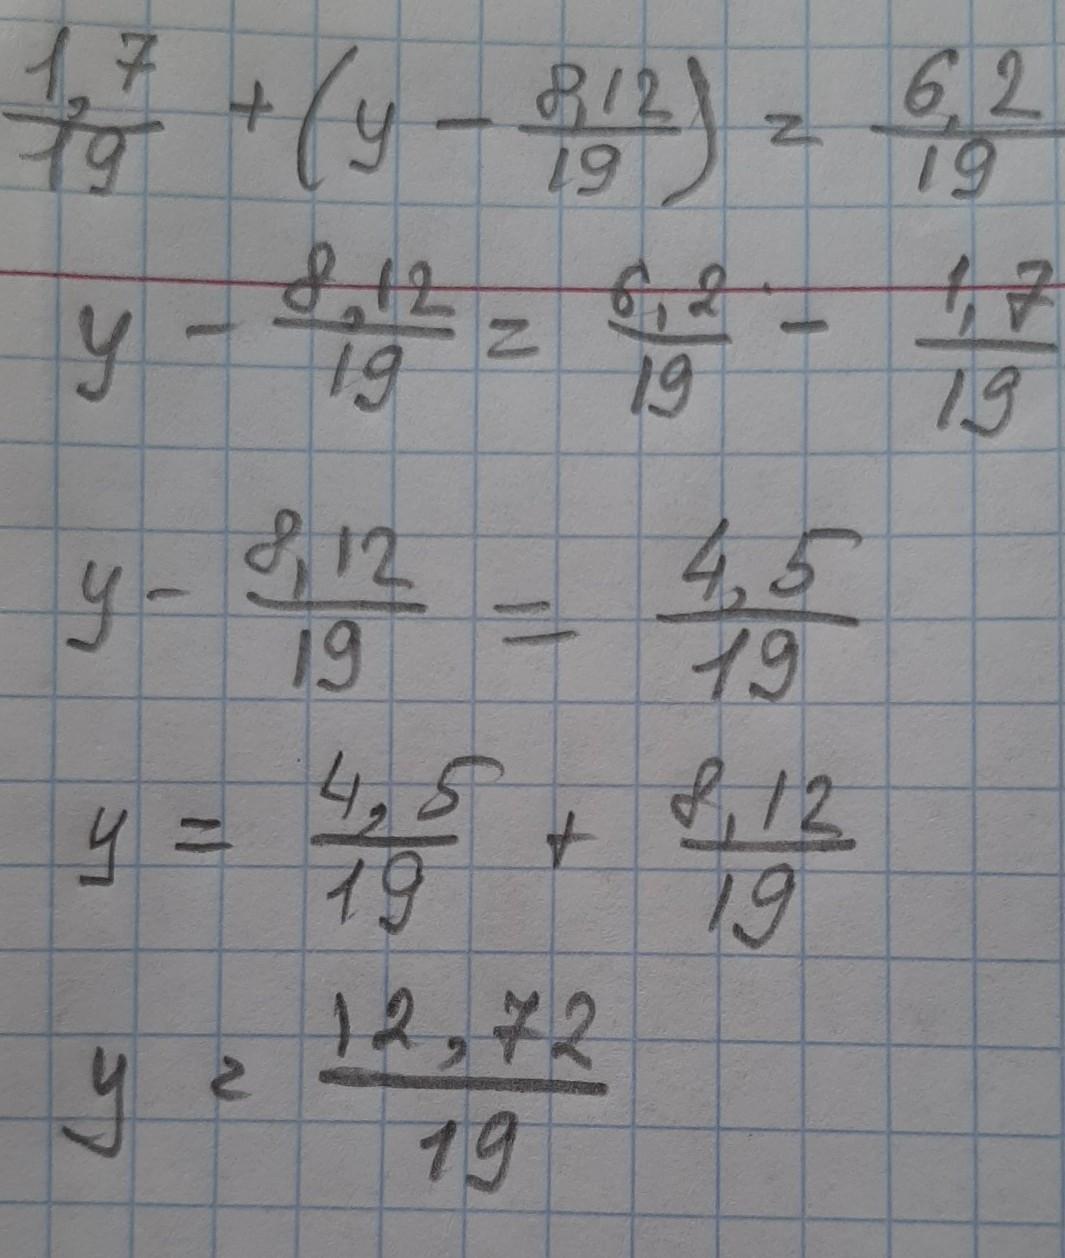 1,7/19 + (y - 8,12/19) = 6,2/19
y - 8,12/19 = 6,2/19 - 1,7/19
y - 8,12/19 = 4,5/19
y = 4,5/19 + 8,12/19
y = 12,72/19